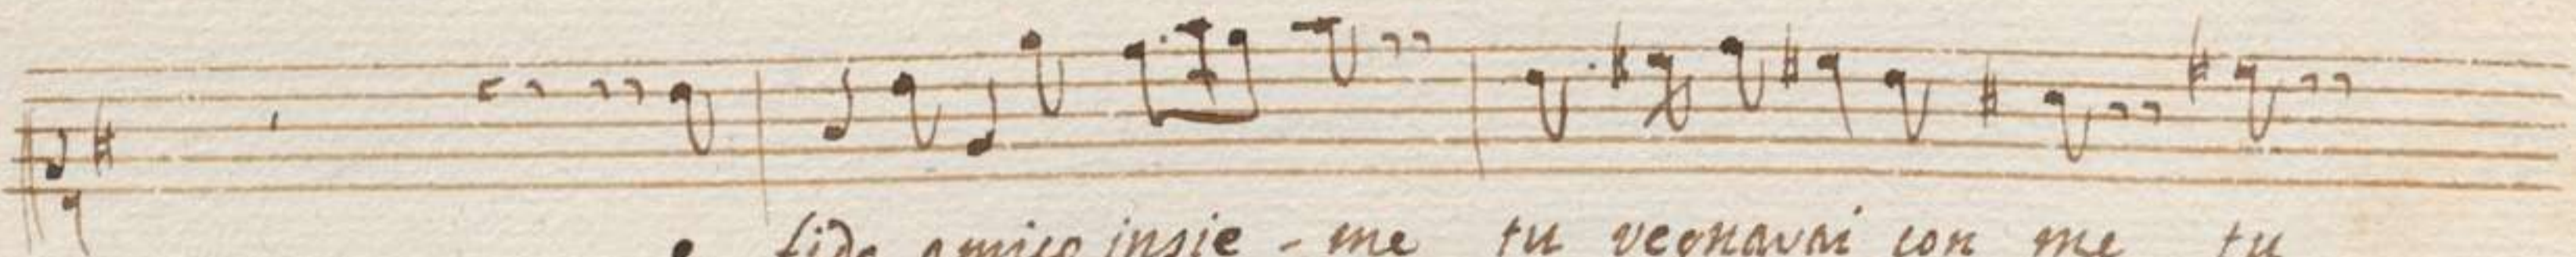 e fido amico insie - me tu vegnavai con me tu